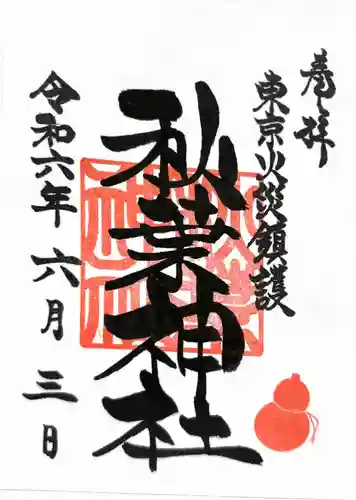 奉拝
東京火災鎮護
秋葉神社
令和六年六月三日